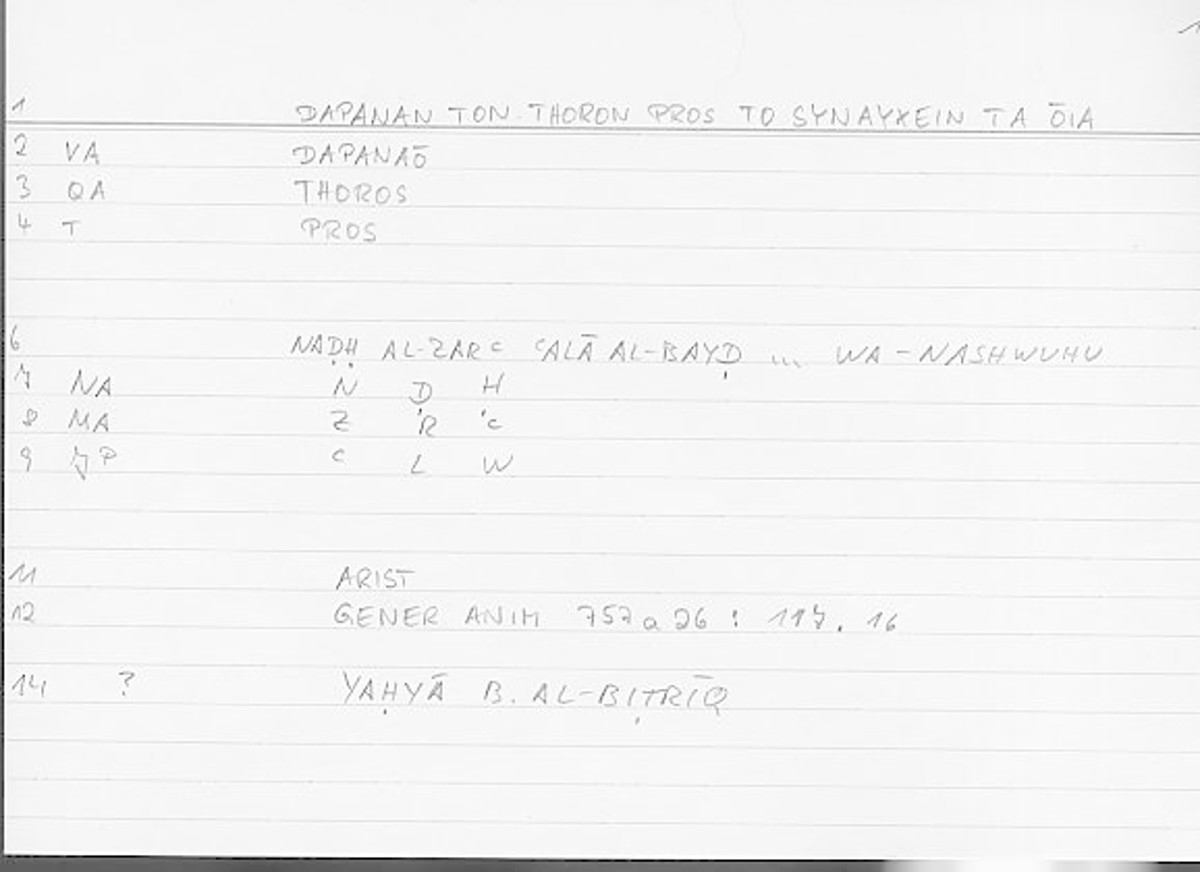 1
1 DAPANAN TON THORON PROS TO SYNAYXEIN TA ŌIA
2 VA DAPANAŌ
3 QA THOROS
4 T PROS
6 NAḌḤ AL-ZARC CALĀ AL-BAYḌ ... WA-NASHWUHU
7 NA N Ḍ Ḥ
8 MA Z R C
9 JP C L W
11 ARIST
12 GENER ANIM 757a26 : 117.16
14 ? YAḤYĀ B. AL-BIṬRĪQ